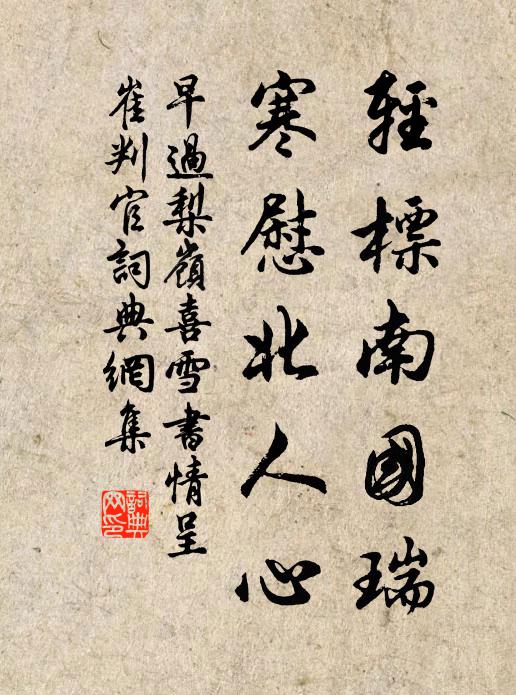 輕標南國瑞
寒慰北人心
早過梨嶺喜雪書情呈
崔判官詞典網集
詞典
網印